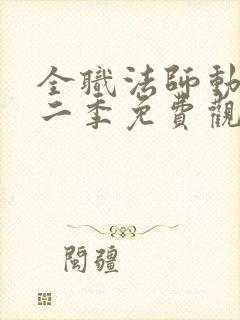 全職法師動
二季免費觀
閩疆